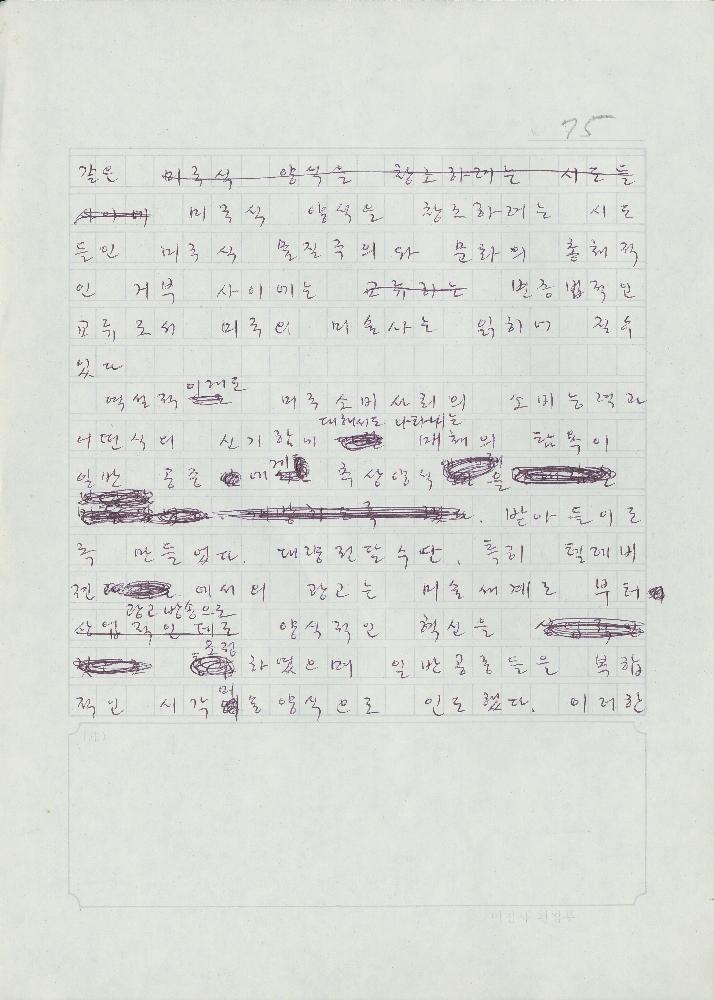 75
같은 미국식 양식을 창조하려는 시도들
미국식 양식을 창조하려는 시도
들인 미국식 물질주의와 문화의 총체적
인 거부 사이에는 교류하는 변증법적인
교류로서 미국의 미술사는 읽히어 질 수
있다
이래도
역설적 미국 소비사회의 소비능력과
대해서도 나타내는
어떤식의 신기함에 매체의 탐욕이
일반 공중에게 추상양식을
받아들이도
록 만들었다. 대량전달수단, 특히 텔레비
전에서의 광고는 미술세계로부터
광고 방송으로
상업적인 데로 양식적인 혁신을
하였으며 일반공중들을 복합
적인 시각미술양식으로 인도했다. 이러한
미진사 편집부